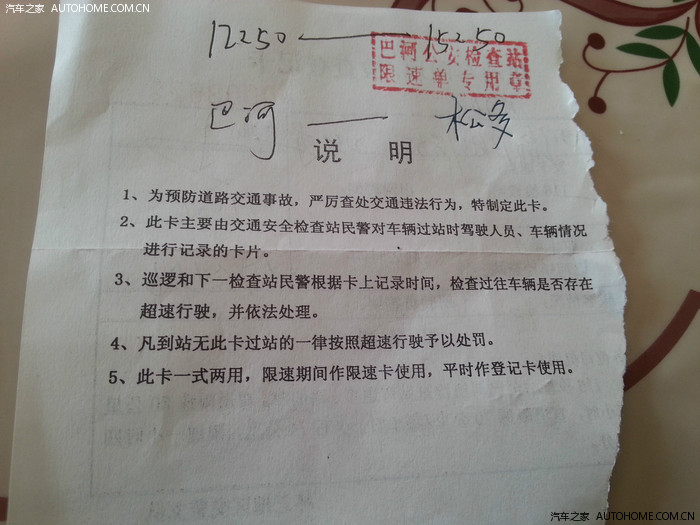 汽车之家 AUTOHOME.COM.CN
12250 —— 15250
巴河公安检查站
限速单专用章
巴河 —— 松多
说 明
1、为预防道路交通事故，严厉查处交通违法行为，特制定此卡。
2、此卡主要由交通安全检查站民警对车辆过站时驾驶人员、车辆情况
进行记录的卡片。
3、巡逻和下一检查站民警根据卡上记录时间，检查过往车辆是否存在
超速行驶，并依法处理。
4、凡到站无此卡过站的一律按照超速行驶予以处罚。
5、此卡一式两用，限速期间作限速卡使用，平时作登记卡使用。
汽车之家 AUTOHOME.COM.CN